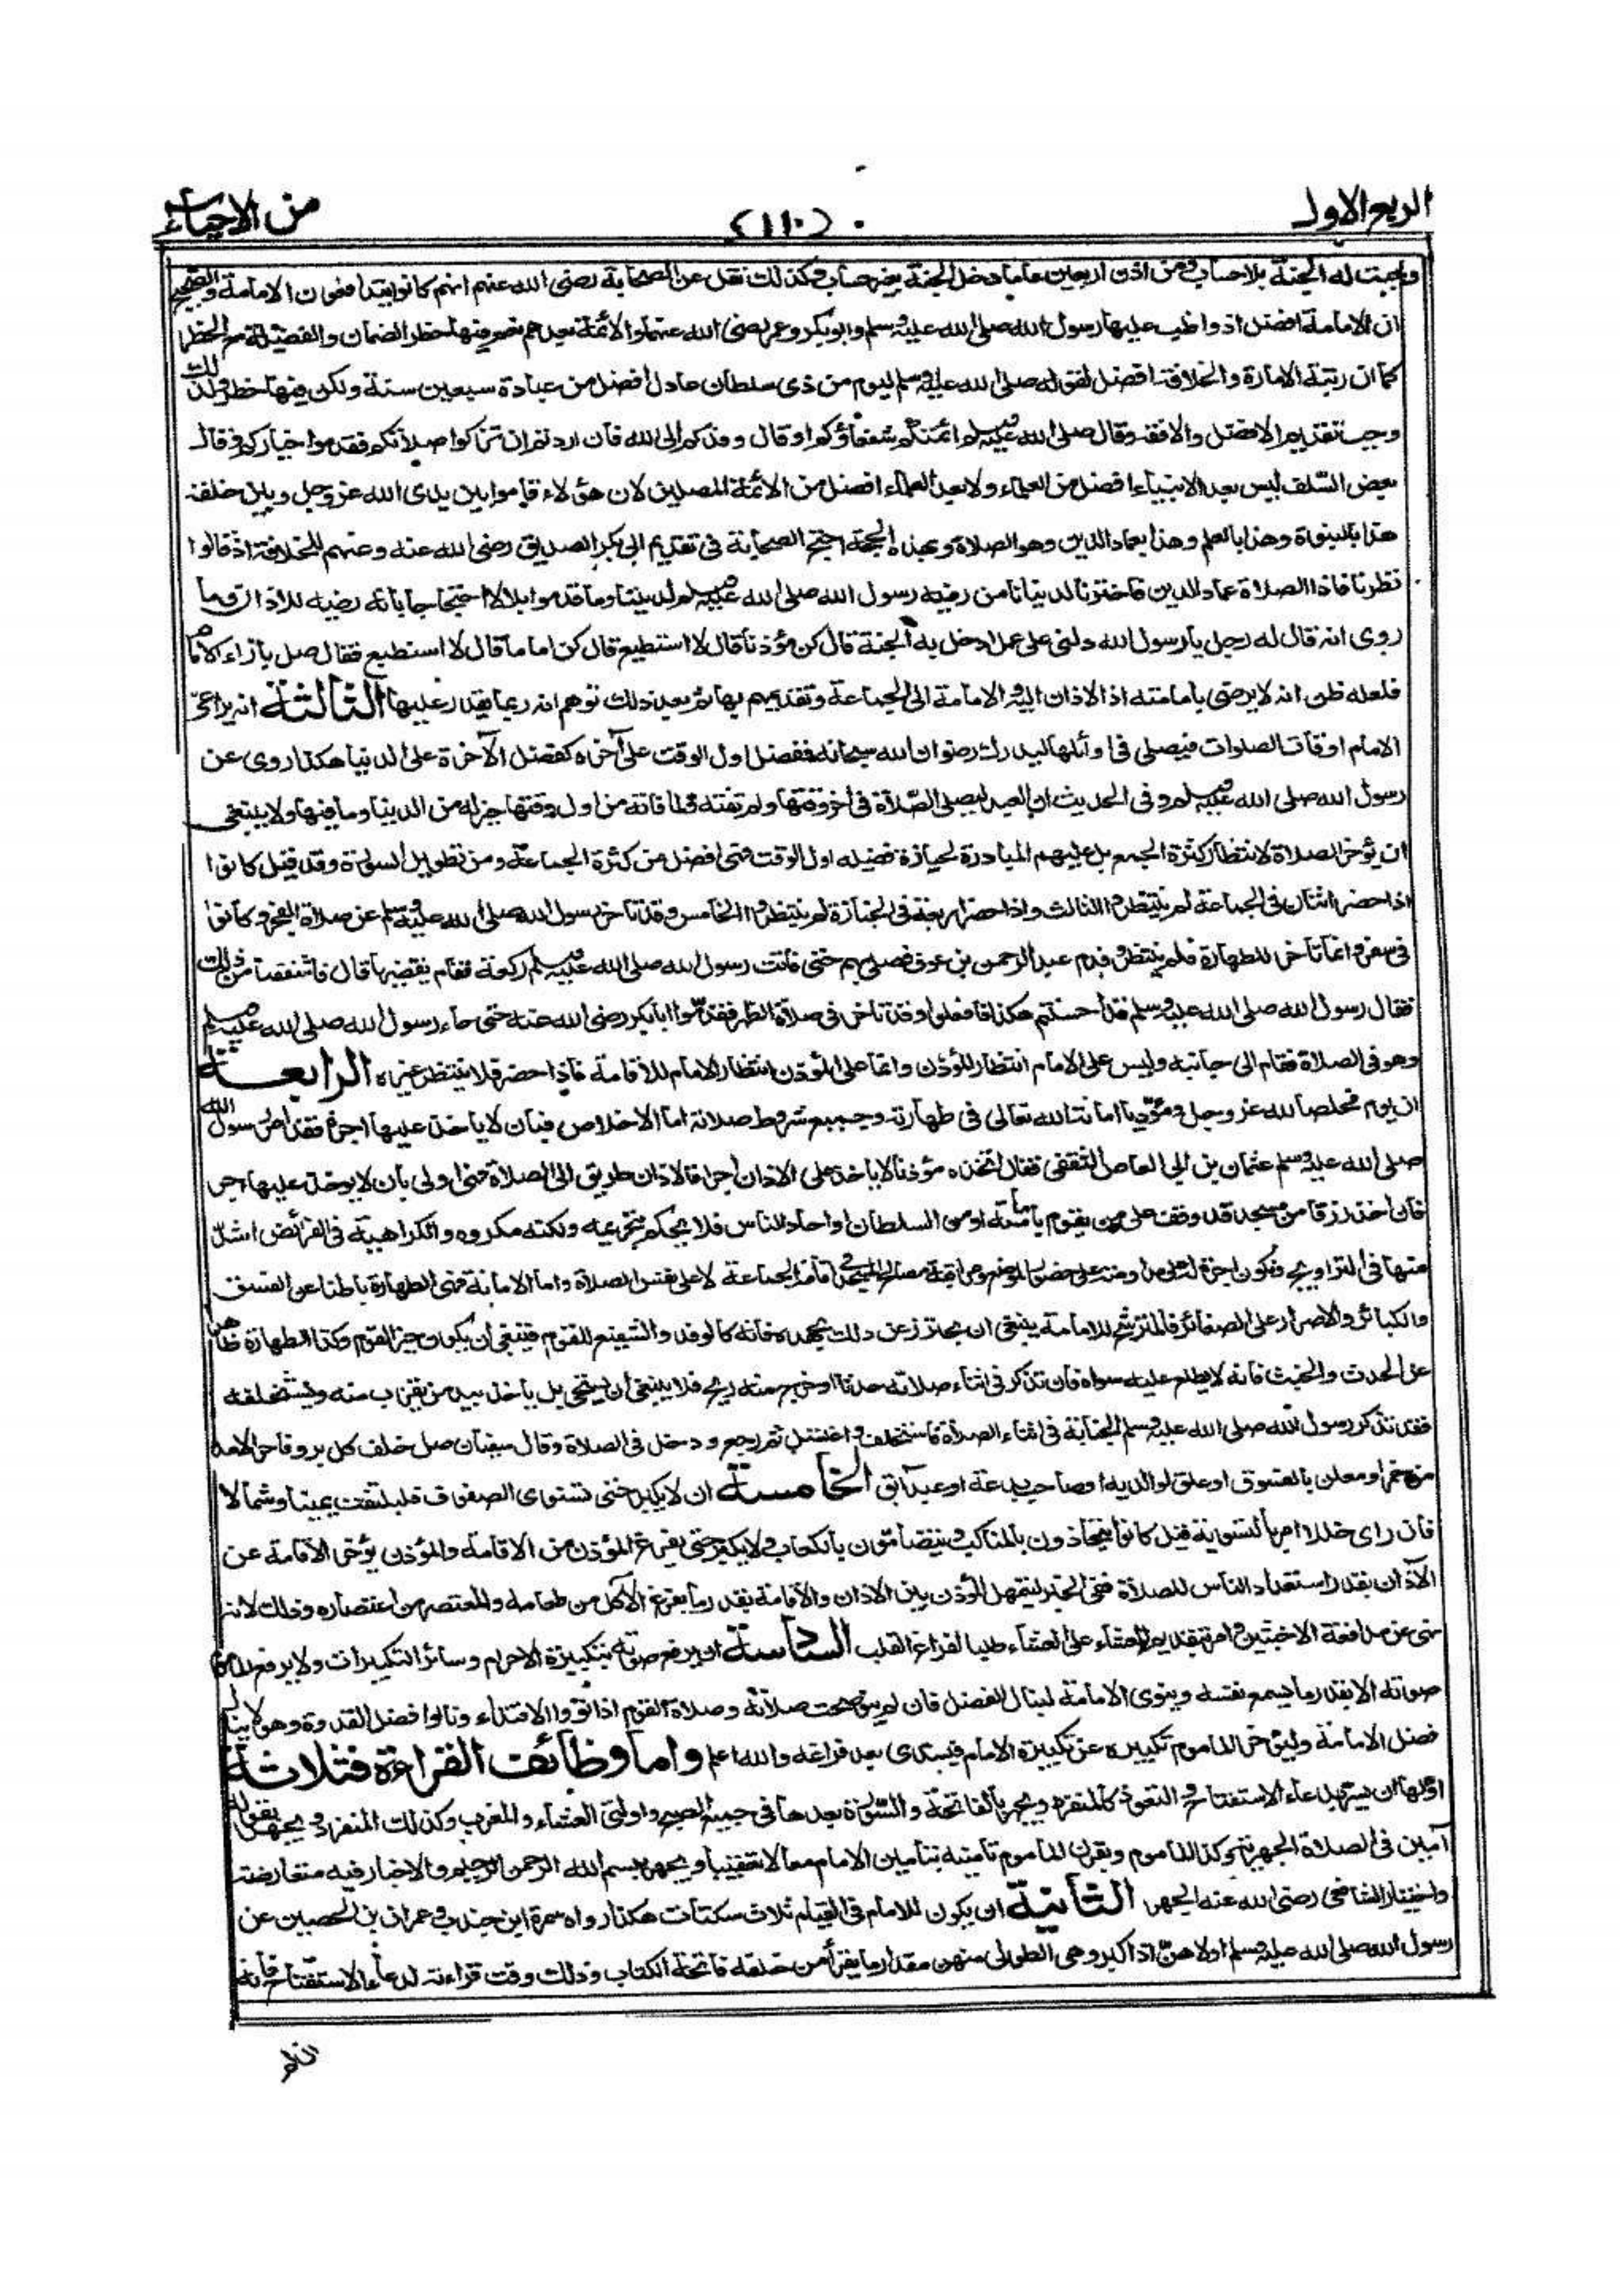 الربع الاول
(١١٠)
من الاحياء
وجبت له الجنة بلا حساب ومن اذن اربعين عاما دخل الجنة بغير حساب وكذلك نقل عن الصحابة رضى الله عنهم انهم كانوا يتدافعون الامامة والصحيح
ان الامامة افضل اذ واظب عليها رسول الله صلى الله عليه وسلم وابو بكر وعمر رضى الله عنهما والائمة بعدهم نعم فيها خطر الضمان والفضيلة مع الخطر
كما ان رتبة الامارة والخلافة افضل لقوله صلى الله عليه وسلم ليوم من ذى سلطان عادل افضل من عبادة سبعين سنة ولكن فيها خطر ولذلك
وجب تقديم الافضل والافقه وقال صلى الله عليه وسلم ائمتكم شفعاؤكم او قال وفدكم الى الله فان اردتم ان تزكوا صلاتكم فقدموا خياركم وقال
بعض السلف ليس بعد الانبياء افضل من العلماء ولا بعد العلماء افضل من الائمة المصلين لان هؤلاء قاموا بين يدى الله عز وجل وبين خلقه
هذا بالنبوة وهذا بالعلم وهذا بعماد الدين وهو الصلاة وبهذه الحجة احتج الصحابة فى تقديم ابى بكر الصديق رضى الله عنه وعنهم للخلافة اذ قالوا
نظرنا فاذا الصلاة عماد الدين فاخترنا لدنيانا من رضيه رسول الله صلى الله عليه وسلم لديننا وما قدموا بلالا احتجاجا بانه رضيه للاذان وما
روى انه قال له رجل يا رسول الله دلنى على عمل ادخل به الجنة قال كن مؤذنا قال لا استطيع قال كن اماما قال لا استطيع فقال صل بازاء الامام
فلعله ظن انه لا يرضى بامامته اذ الاذان اليه والامامة الى الجماعة وتقديمهم بها ثم بعد ذلك توهم انه ربما يقدر عليها الثالثة ان يراعى
الامام اوقات الصلوات فيصلى فى اوائلها ليدرك رضوان الله سبحانه ففضل اول الوقت على آخره كفضل الآخرة على الدنيا هكذا روى عن
رسول الله صلى الله عليه وسلم وفى الحديث ان العبد ليصلى الصلاة فى آخر وقتها ولم تفته ولما فاته من اول وقتها خير له من الدنيا وما فيها ولا ينبغى
ان يؤخر الصلاة لانتظار كثرة الجمع بل عليهم المبادرة لحيازة فضيلة اول الوقت فهى افضل من كثرة الجماعة ومن تطويل السورة وقد قيل كانوا
اذا حضر اثنان فى الجماعة لم ينتظروا الثالث واذا حضر اربعة فى الجنازة لم ينتظروا الخامس وقد تاخر رسول الله صلى الله عليه وسلم عن صلاة الفجر وكانوا
فى سفر وانما تاخر للطهارة فلم ينتظر وقدم عبد الرحمن بن عوف فصلى بهم حتى فاتت رسول الله صلى الله عليه وسلم ركعة فقام يقضيها قال فاشفقنا من ذلك
فقال رسول الله صلى الله عليه وسلم قد احسنتم هكذا فافعلوا وقد تاخر فى صلاة الظهر فقدموا ابا بكر رضى الله عنه حتى جاء رسول الله صلى الله عليه وسلم
وهو فى الصلاة فقام الى جانبه وليس على الامام انتظار المؤذن وانما على المؤذن انتظار الامام للاقامة فاذا حضر فلا ينتظر غيره الرابعة
ان يوم مخلصا لله عز وجل ومؤديا امانة الله تعالى فى طهارته وجميع شروط صلاته اما الاخلاص فبان لا ياخذ عليها اجرة فقد امر رسول الله
صلى الله عليه وسلم عثمان بن ابى العاص الثقفى فقال اتخذ مؤذنا لا ياخذ على الاذان اجرا فالاذان طريق الى الصلاة فهى اولى بان لا يوخذ عليها اجر
فان اخذ رزقا من مسجد قد وقف على من يقوم بامامته او من السلطان او احاد الناس فلا يحكم بتحريمه ولكنه مكروه والكراهية فى الفرائض اشد
منها فى التراويح وتكون اجرة له على مداومته على حضور الموضع ومراقبة مصالح المسجد فى اقامة الجماعة لا على نفس الصلاة واما الامانة فهى الطهارة باطنا عن الفسق
والكبائر والاصرار على الصغائر فالمترشح للامامة ينبغى ان يحترز عن ذلك بجهده فانه كالوفد والشفيع للقوم فينبغى ان يكون خير القوم وكذا الطهارة ظاهرا
عن الحدث والخبث فانه لا يطلع عليه سواه فان تذكر فى اثناء صلاته حدثا او خرج منه ريح فلا ينبغى ان يستحى بل ياخذ بيد من يقرب منه ويستخلفه
فقد تذكر رسول الله صلى الله عليه وسلم الجنابة فى اثناء الصلاة فاستخلف واغتسل ثم رجع ودخل فى الصلاة وقال سفيان صل خلف كل بر وفاجر الا مد
من خمر او معلن بالفسوق او عاق لوالديه او صاحب بدعة او عبد آبق الخامسة ان لا يكبر حتى تستوى الصفوف فليلتفت يمينا وشمالا
فان راى خللا امر بالتسوية قيل كانوا يتحاذون بالمناكب ويتضامون بالكعاب ولا يكبر حتى يفرغ المؤذن من الاقامة والمؤذن يؤخر الاقامة عن
الاذان بقدر استعداد الناس للصلاة ففى الخبر ليتمهل المؤذن بين الاذان والاقامة بقدر ما يفرغ الآكل من طعامه والمعتصر من اعتصاره وذلك لانه
نهى عن مدافعة الاخبثين وامر بتقديم العشاء على العشاء طلبا لفراغ القلب السادسة ان يرفع صوته بتكبيرة الاحرام وسائر التكبيرات ولا يرفع الماموم
صوته الا بقدر ما يسمع نفسه وينوى الامامة لينال الفضل فان لم ينو صحت صلاته وصلاة القوم اذا نووا الاقتداء ونالوا فضل القدوة وهو لا ينال
فضل الامامة وليؤخر الماموم تكبيره عن تكبيرة الامام فيبتدى بعد فراغه والله اعلم واما وظائف القراءة فثلاثة
اولها ان يسر بدعاء الاستفتاح والتعوذ كالمنفرد ويجهر بالفاتحة والسورة بعدها فى جميع الصبح واولتى العشاء والمغرب وكذلك المنفرد ويجهر بقوله
آمين فى الصلاة الجهرية وكذا الماموم ويقرن الماموم تامينه بتامين الامام معا لا تعقيبا ويجهر ببسم الله الرحمن الرحيم والاخبار فيه متعارضة
واختيار الشافعى رضى الله عنه الجهر الثانية ان يكون للامام فى القيام ثلاث سكتات هكذا رواه سمرة ابن جندب وعمران بن الحصين عن
رسول الله صلى الله عليه وسلم اولاهن اذا كبر وهى الطولى منهن مقدار ما يقرأ من خلفه فاتحة الكتاب وذلك وقت قراءته لدعاء الاستفتاح فانه